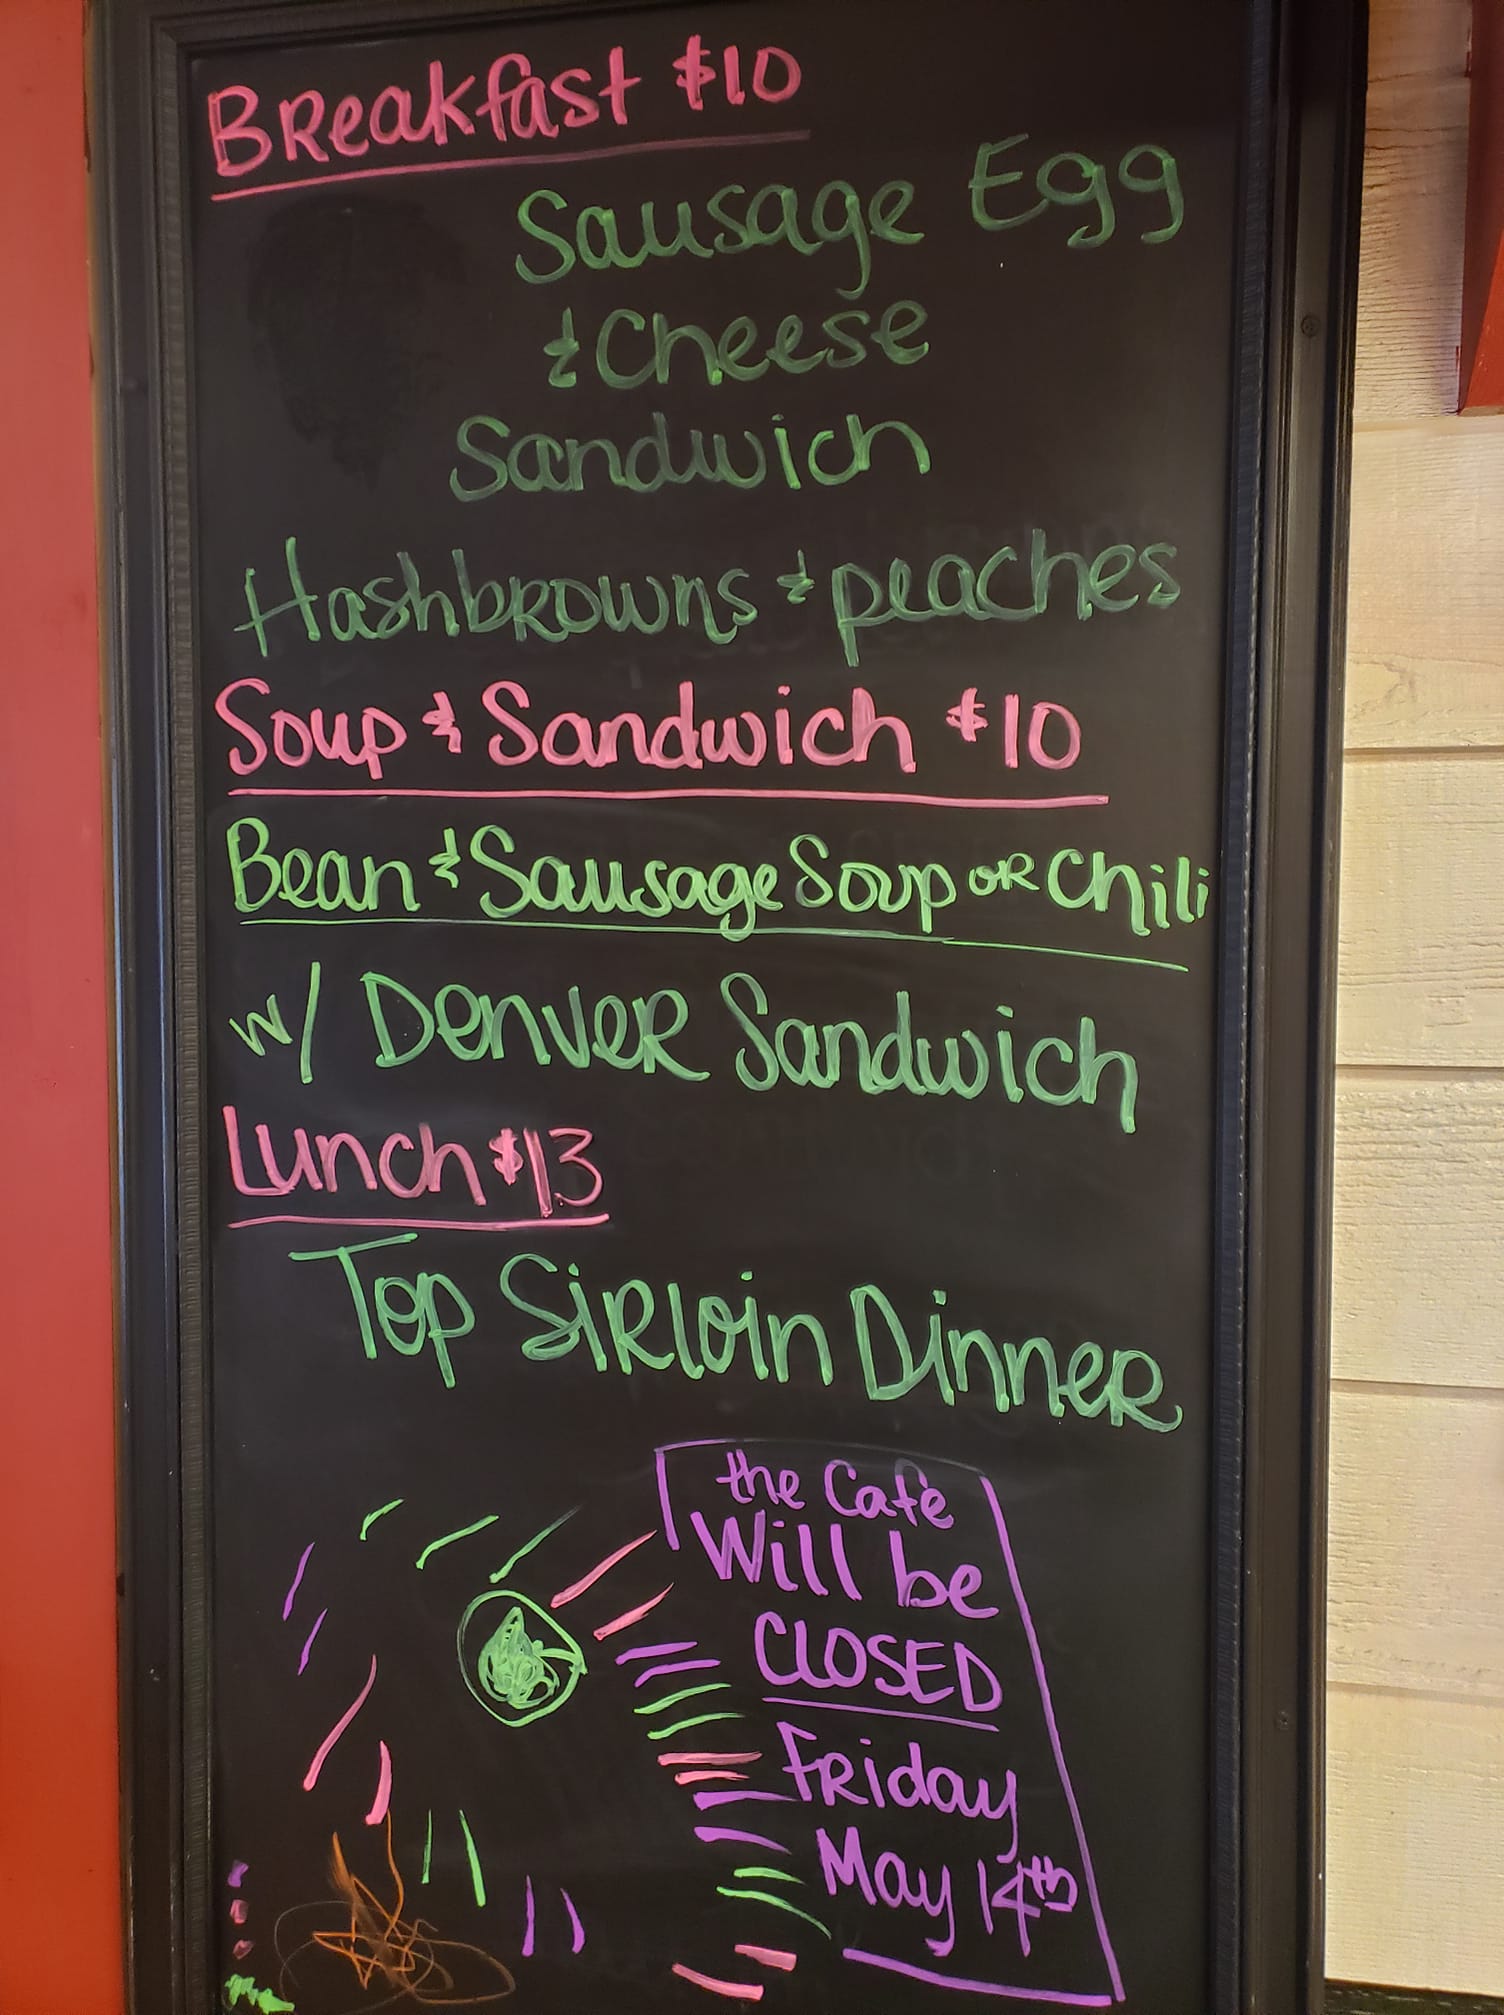 Breakfast $10
Sausage Egg
& Cheese
Sandwich
Hashbrowns & peaches
Soup & Sandwich $10
Bean & Sausage Soup or Chili
w/ Denver Sandwich
Lunch $13
Top Sirloin Dinner
the Cafe
Will be
CLOSED
Friday
May 14th